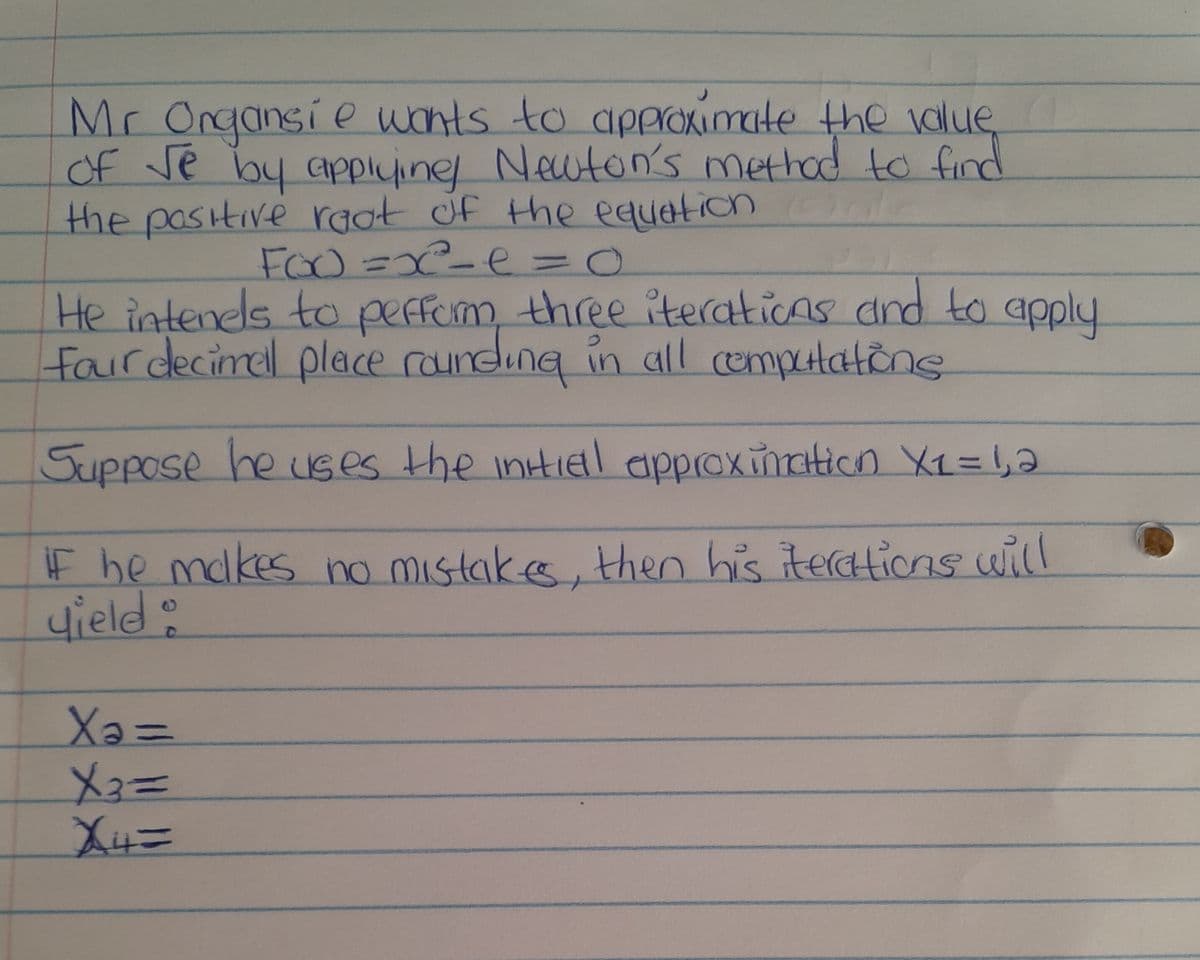 Mr Organsie wants to approximate the value
of √e by applying Newton's method to find
the positive root of the equation
F(x) = x² - e = 0
He intends to perform three iterations and to apply
four decimal place rounding in all computations
Suppose he uses the initial approximation X1 = 1,2
If he makes no mistakes, then his iterations will
yield :
X2 =
X3 =
X4 =